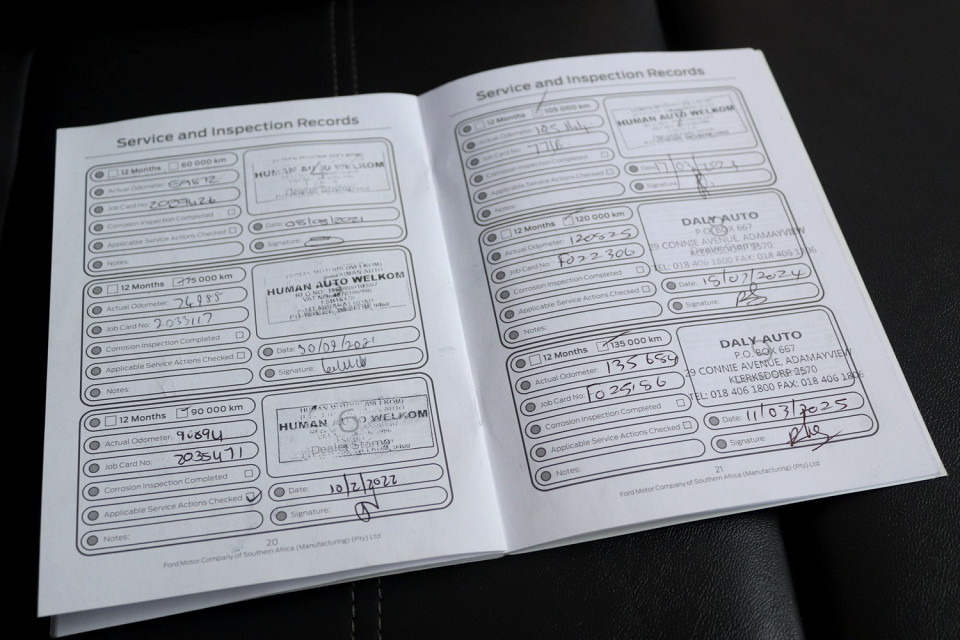 Service and Inspection Records
12 Months 60 000 km
Actual Odometer: 59872
Job Card No: 2029426
Corrosion Inspection Completed
Applicable Service Actions Checked
Notes:
HUMAN AUTO WELKOM
Date: 05/08/2021
Signature:
12 Months 75 000 km
Actual Odometer: 74985
Job Card No: 2033117
Corrosion Inspection Completed
Applicable Service Actions Checked
Notes:
HUMAN AUTO WELKOM
Date: 30/09/2021
Signature:
12 Months 90 000 km
Actual Odometer: 90894
Job Card No: 2035471
Corrosion Inspection Completed
Applicable Service Actions Checked
Notes:
HUMAN AUTO WELKOM
6
Dealer Stamp
Date: 10/2/2022
Signature:
20
Ford Motor Company of Southern Africa (Manufacturing) (Pty) Ltd
Service and Inspection Records
12 Months 105 000 km
Actual Odometer:
Job Card No:
Corrosion Inspection Completed
Applicable Service Actions Checked
Notes:
HUMAN AUTO WELKOM
Date:
Signature:
12 Months 120 000 km
Actual Odometer: 120525
Job Card No: F022306
Corrosion Inspection Completed
Applicable Service Actions Checked
Notes:
DALY AUTO
P.O. BOX 667
29 CONNIE AVENUE, ADAMAYVIEW
2570
TEL: 018 406 1800 FAX: 018 406 1806
Date: 15/07/2024
Signature:
12 Months 135 000 km
Actual Odometer: 135 654
Job Card No: F025186
Corrosion Inspection Completed
Applicable Service Actions Checked
Notes:
DALY AUTO
P.O. BOX 667
29 CONNIE AVENUE, ADAMAYVIEW
KLERKSDORP 2570
TEL: 018 406 1800 FAX: 018 406 1806
Date: 11/03/2025
Signature:
21
Ford Motor Company of Southern Africa (Manufacturing) (Pty) Ltd